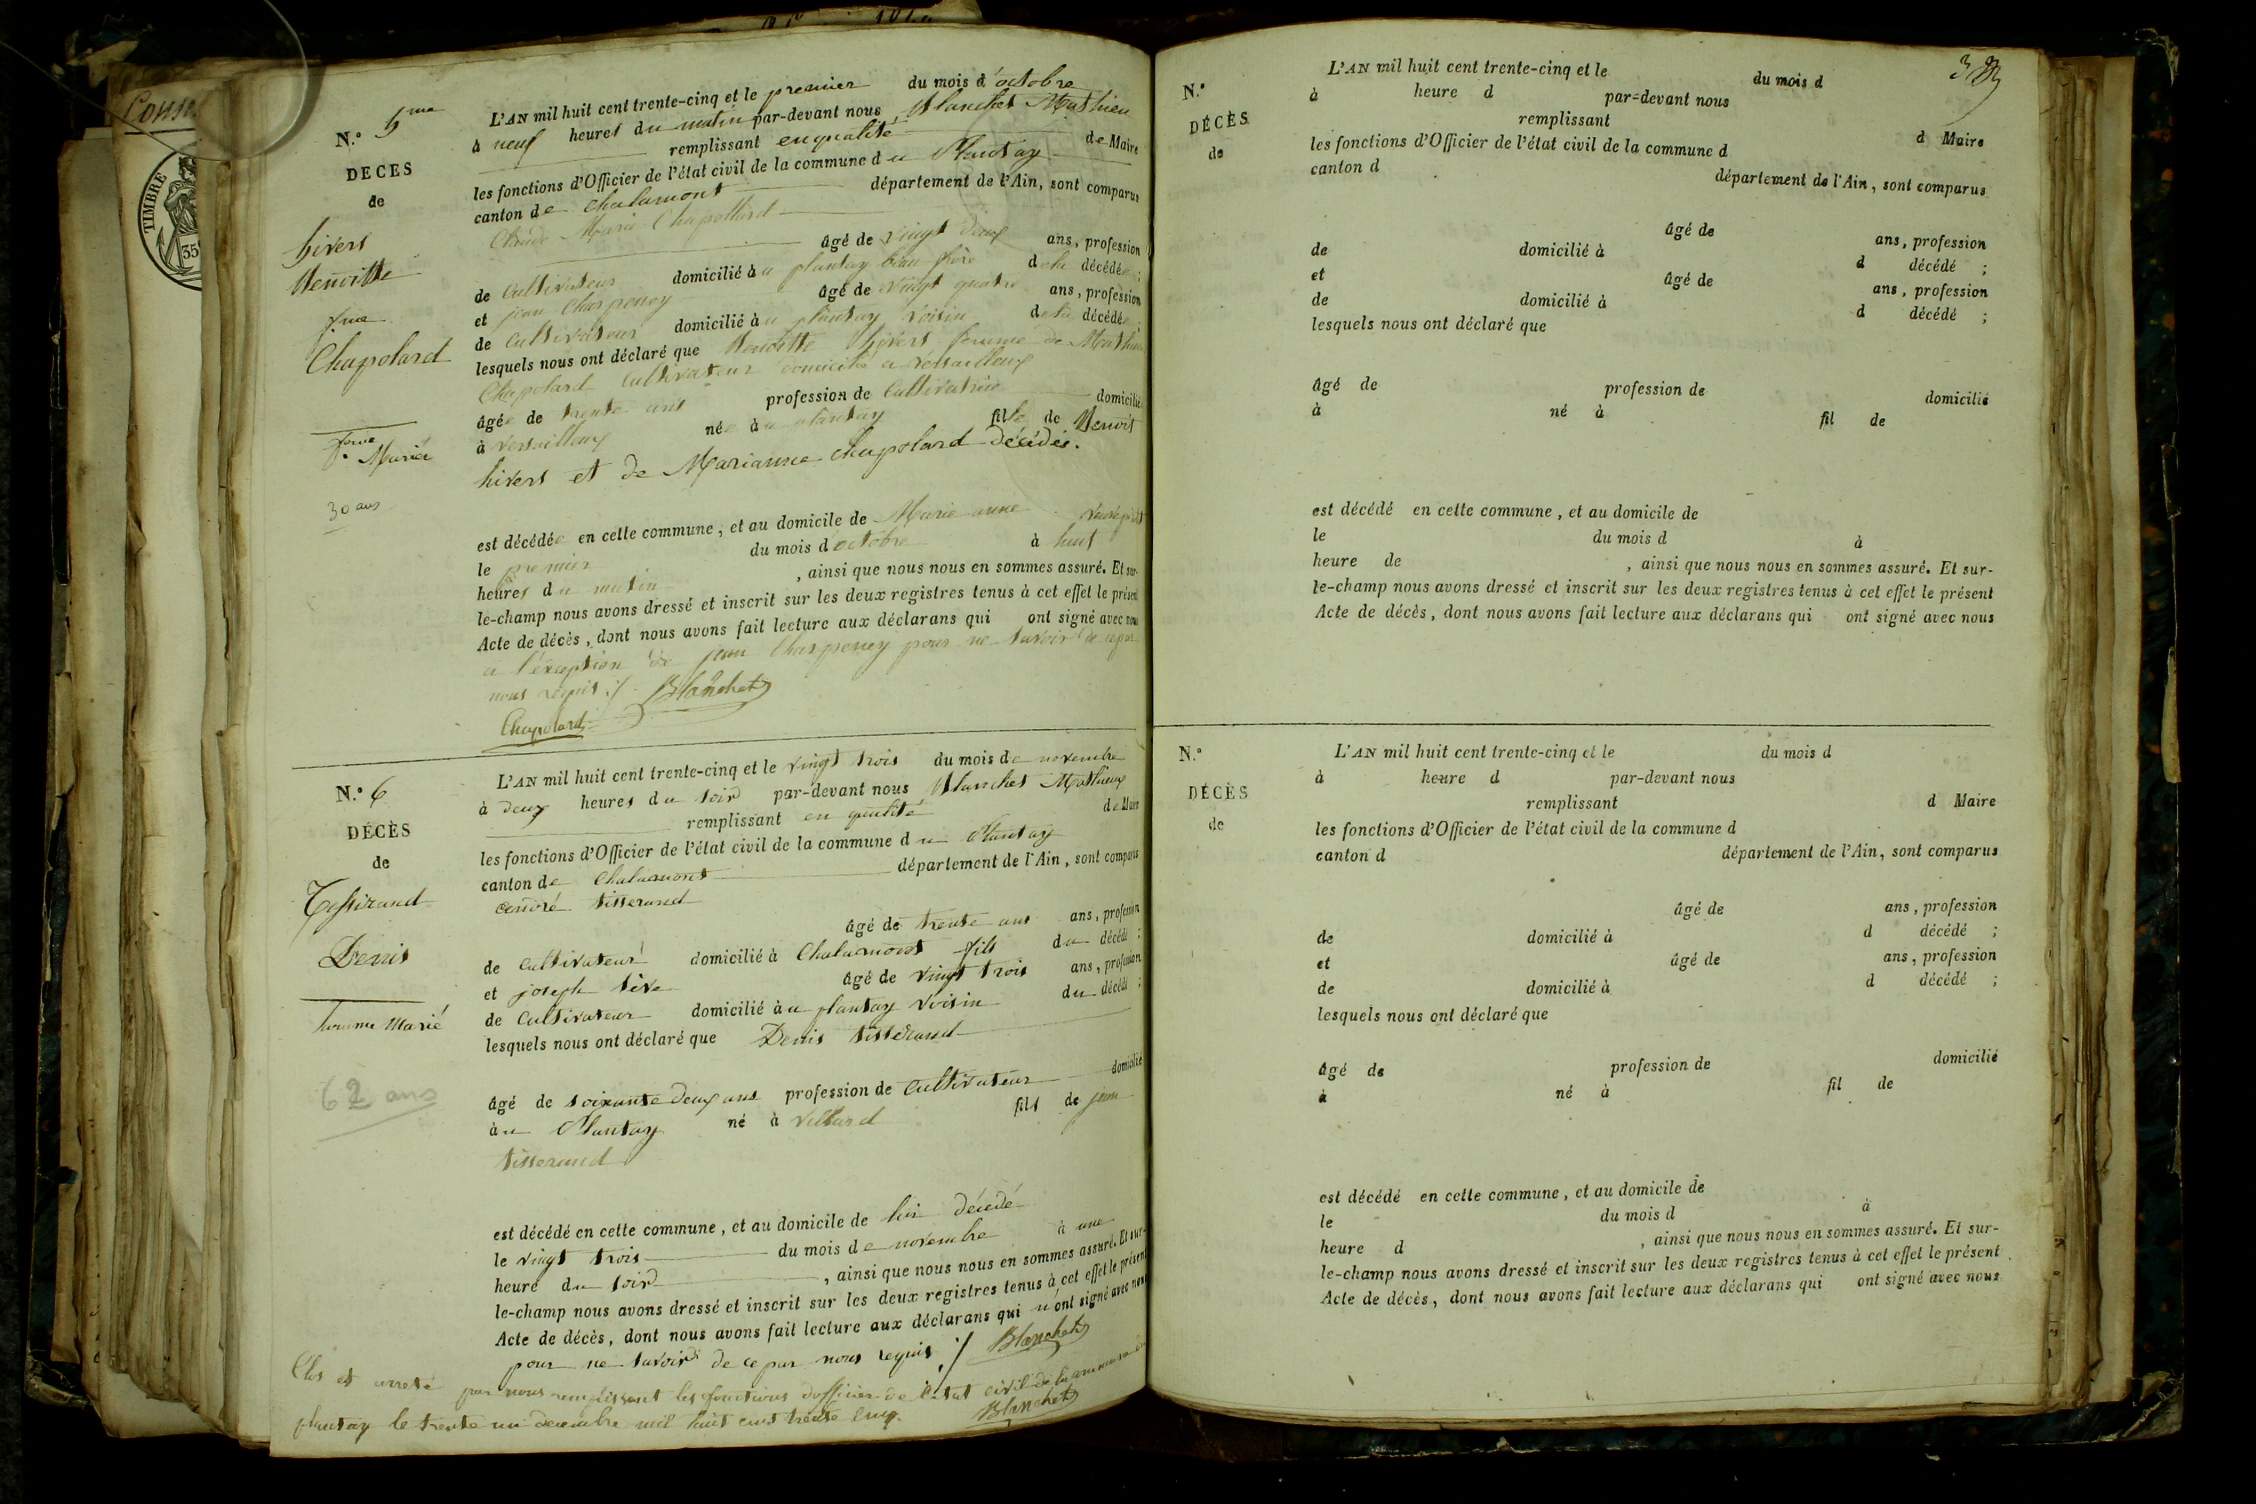 Conse
TIMBRE
35
N.° 5me
DECES
de
hivers
Benoitte
fme
Chapolard
feme
Mariée
30 ans
L'AN mil huit cent trente-cinq et le premier du mois d'octobre
à neuf heures du matin par-devant nous, Blanchet Mathieu
remplissant en qualité de Maire
les fonctions d'Officier de l'état civil de la commune du Plantay
canton de Chalamont département de l'Ain, sont comparus
Claude Marie Chapollard
âgé de vingt deux ans, profession
de Cultivateur domicilié au plantay beau frère de la décédée ;
et jean Charpeney âgé de vingt quatre ans, profession
de Cultivateur domicilié au plantay voisin de la décédée ;
lesquels nous ont déclaré que Benoitte hivers femme de Mathieu
Chapolard Cultivateur domicilié a versailleux
âgée de trente ans profession de Cultivatrice domicilié
à versailleux née au plantay fille de Benoit
hivers et de Marianne chapolard décédée.
est décédée en cette commune, et au domicile de Marie anne
le premier du mois d'octobre à huit
heures du matin, ainsi que nous nous en sommes assuré. Et sur-
le-champ nous avons dressé et inscrit sur les deux registres tenus à cet effet le présent
Acte de décès, dont nous avons fait lecture aux déclarans qui ont signé avec nous
a l'éxception de jean Charpeney pour ne savoir de ce par
nous requis ./. Blanchet
Chapolard
N.° 6
DÉCÈS
de
Tessirand
Denis
homme Marié
62 ans
L'AN mil huit cent trente-cinq et le vingt trois du mois de novembre
à deux heures du soir par-devant nous Blanchet Mathieux
remplissant en qualité de Maire
les fonctions d'Officier de l'état civil de la commune du Plantay
canton de Chalamont département de l'Ain, sont comparus
tisserand
âgé de trente ans ans, profession
de Cultivateur domicilié à Chalamont fils du décédé ;
et joseph âgé de vingt trois ans, profession
de Cultivateur domicilié au plantay voisin du décédé ;
lesquels nous ont déclaré que Denis tisserand
âgé de soixante deux ans profession de Cultivateur domicilié
au Plantay né à villard fils de jean
tisserand
est décédé en cette commune, et au domicile de lui décédé
le vingt trois du mois de novembre à une
heure du soir, ainsi que nous nous en sommes assuré. Et sur-
le-champ nous avons dressé et inscrit sur les deux registres tenus à cet effet le présent
Acte de décès, dont nous avons fait lecture aux déclarans qui n'ont signé avec nous
pour ne savoir de ce par nous requis ./. Blanchet
Clos et arreté par nous remplissant les fonctions d'officier de l'état civil de la commune
plantay le trente un decembre mil huit cent trente cinq. Blanchet
N.°
DÉCÈS
de
L'AN mil huit cent trente-cinq et le du mois d
à heure d par-devant nous
remplissant d Maire
les fonctions d'Officier de l'état civil de la commune d
canton d département de l'Ain, sont comparus
âgé de ans, profession
de domicilié à d décédé ;
et âgé de ans, profession
de domicilié à d décédé ;
lesquels nous ont déclaré que
âgé de profession de domicilié
à né à fil de
est décédé en cette commune, et au domicile de
le du mois d à
heure de , ainsi que nous nous en sommes assuré. Et sur-
le-champ nous avons dressé et inscrit sur les deux registres tenus à cet effet le présent
Acte de décès, dont nous avons fait lecture aux déclarans qui ont signé avec nous
N.°
DÉCÈS
de
L'AN mil huit cent trente-cinq et le du mois d
à heure d par-devant nous
remplissant d Maire
les fonctions d'Officier de l'état civil de la commune d
canton d département de l'Ain, sont comparus
âgé de ans, profession
de domicilié à d décédé ;
et âgé de ans, profession
de domicilié à d décédé ;
lesquels nous ont déclaré que
âgé de profession de domicilié
à né à fil de
est décédé en cette commune, et au domicile de
le du mois d à
heure d , ainsi que nous nous en sommes assuré. Et sur-
le-champ nous avons dressé et inscrit sur les deux registres tenus à cet effet le présent
Acte de décès, dont nous avons fait lecture aux déclarans qui ont signé avec nous